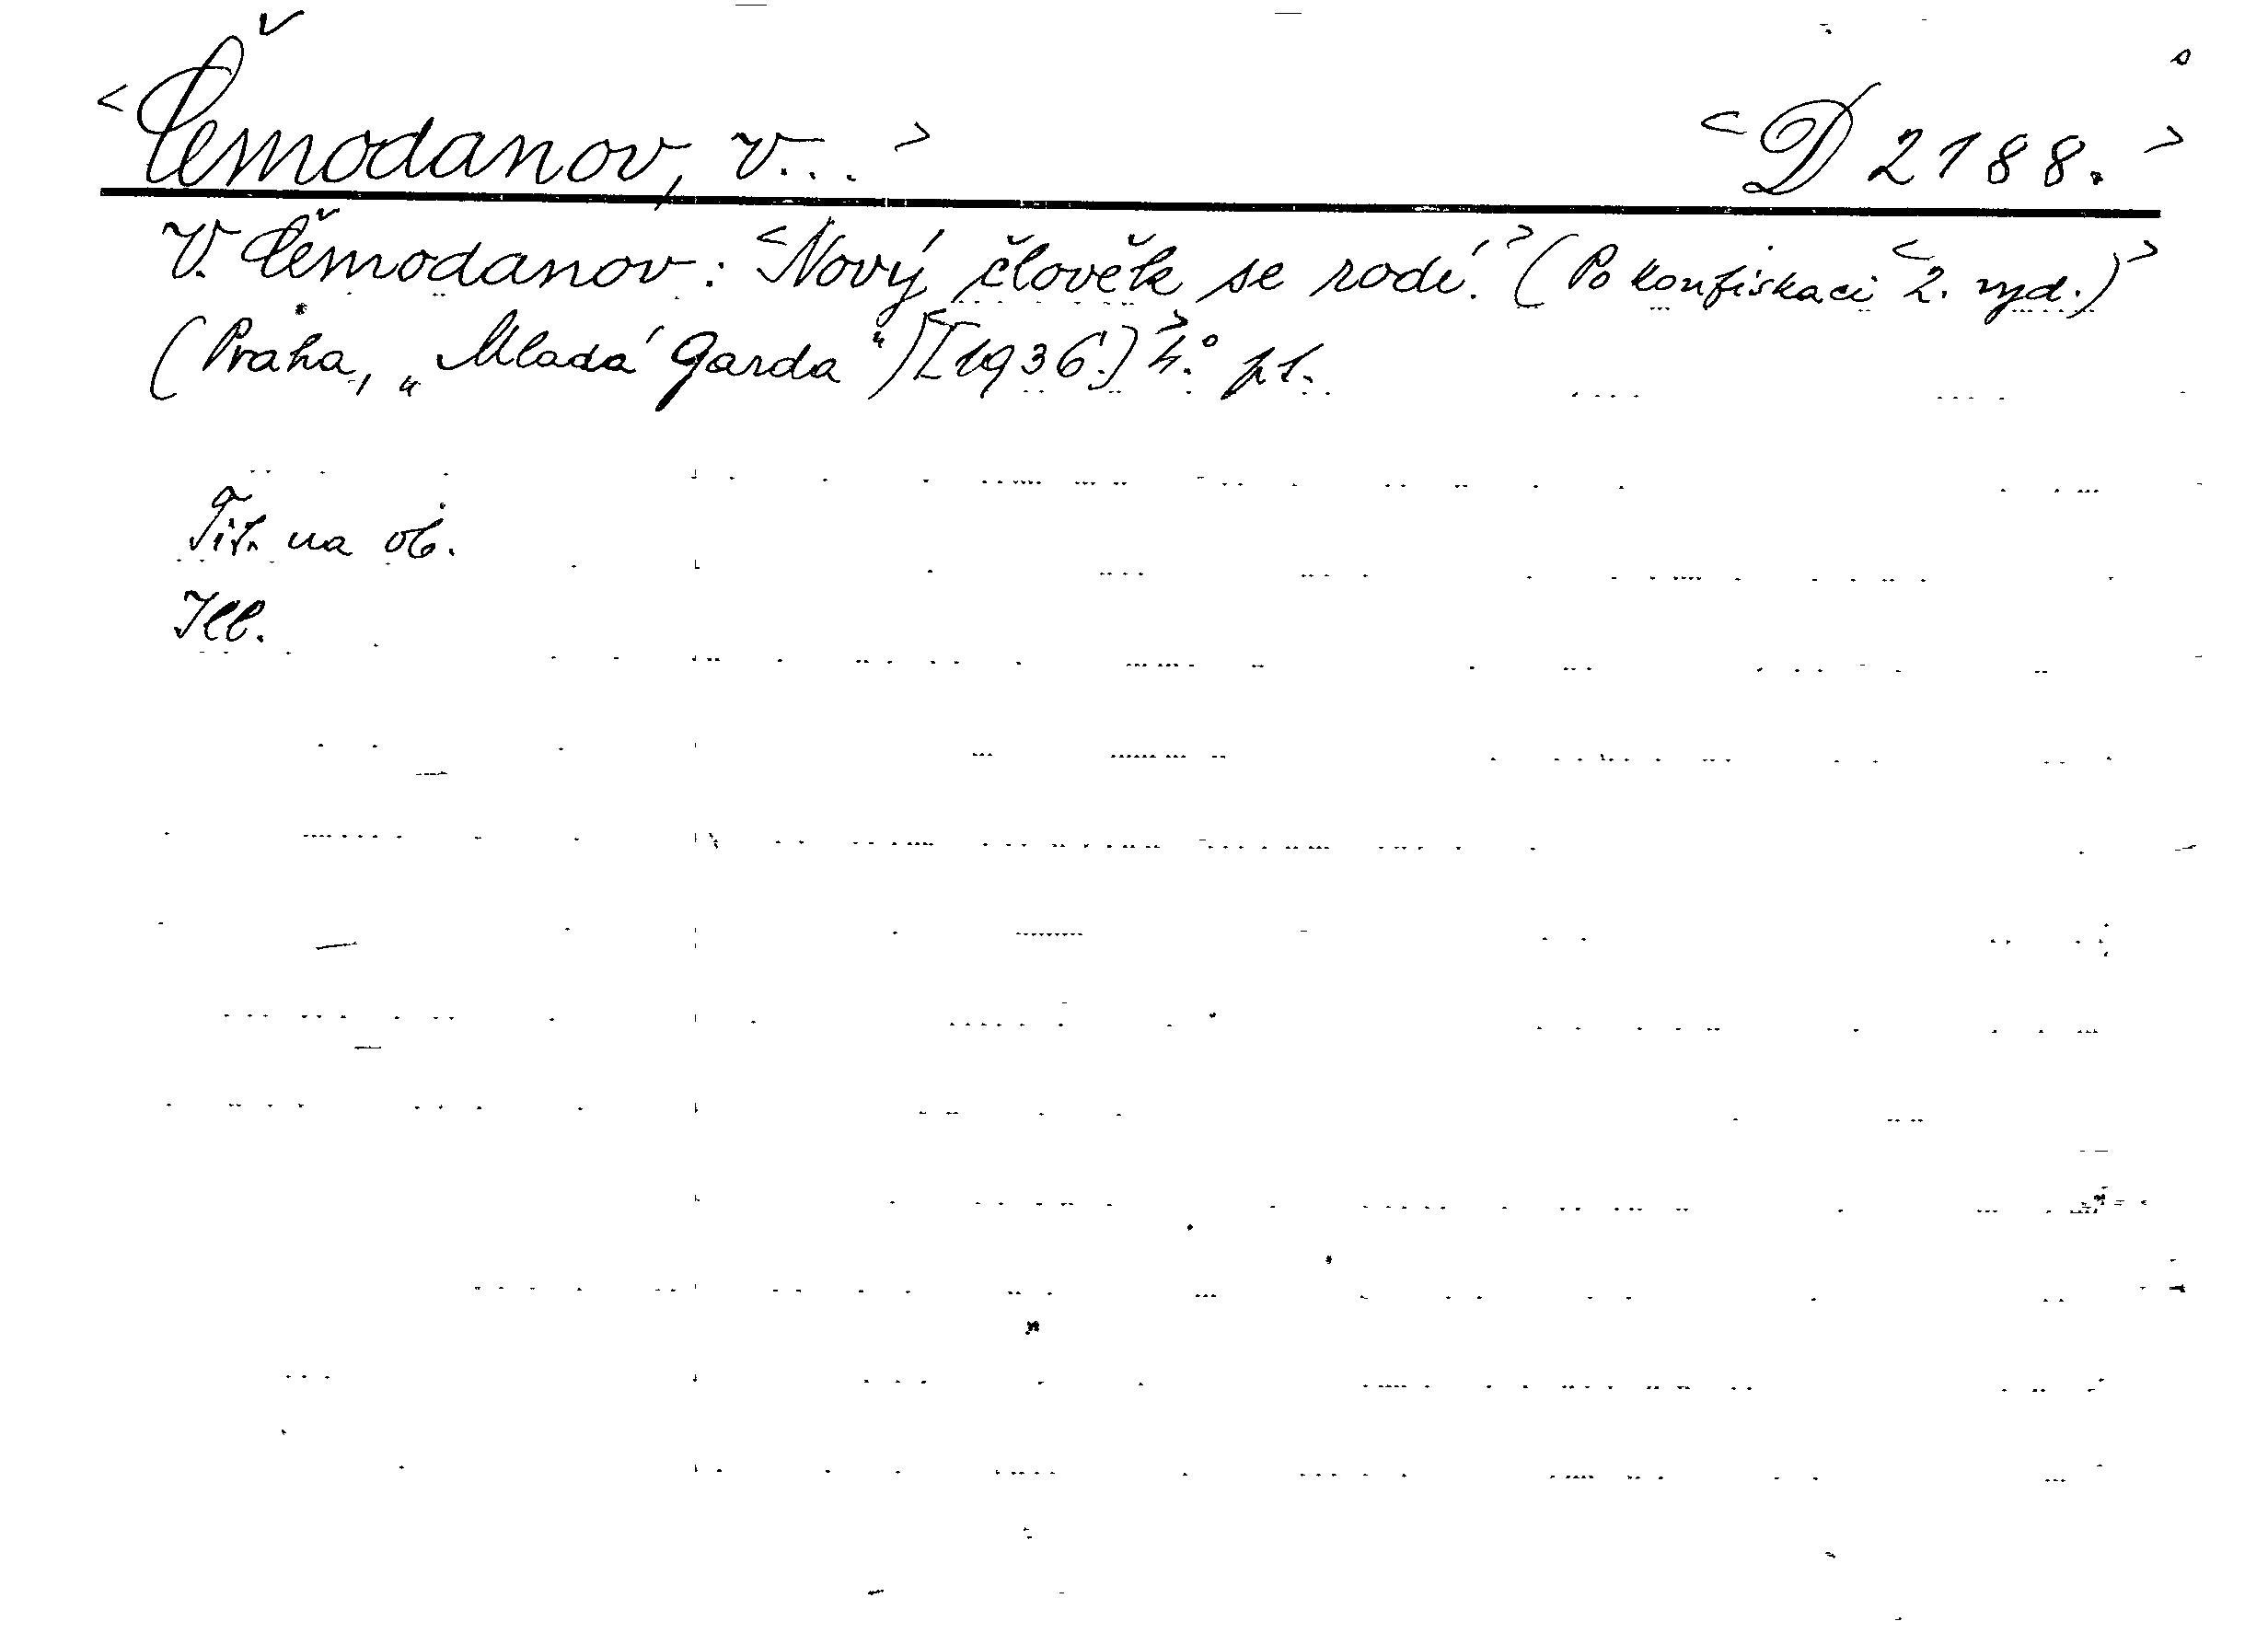 <Čemodanov, V...> <D 2188.>
V. Čemodanov: <Nový člověk se rodí.> (Po konfiskaci <2. vyd.)>
(Praha, „Mladá Garda“) <[1936.]> 4.°
Tit. na ob.
Ill.